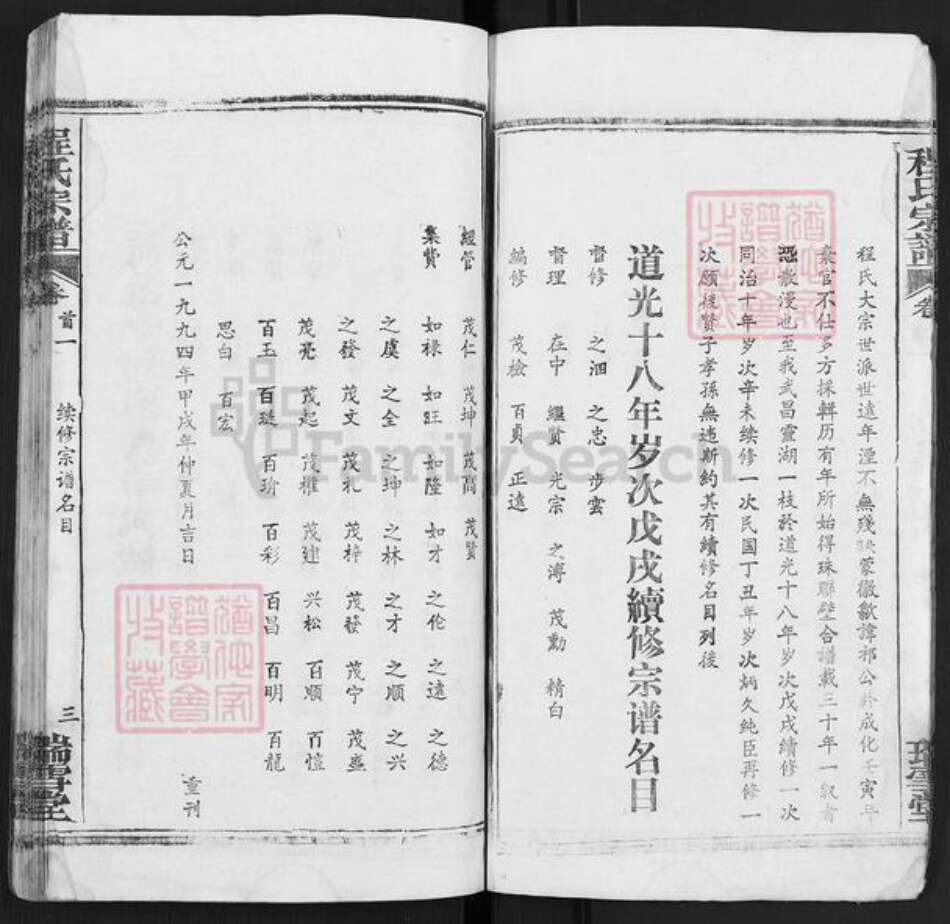 程氏宗譜
卷
程氏大宗世派世遠年湮不無殘缺蒙徽歙諱祁公於成化壬寅年
棄官不仕多方採輯历有年所始得珠聯壁合譜載三十年一叙者
恐散漫也至我武昌靈湖一枝於道光十八年岁次戊戌續修一次
同治十年岁次辛未续修一次民国丁丑年岁次炳久純臣再修一
次願後賢子孝孫無违斯約其有續修名目列後
道光十八年岁次戊戌續修宗谱名目
督修 之洄 之忠 步雲
督理 在中 繼賢 光宗 之溥 茂勳 精白
編修 茂檢 百貞 正遠
瑞雪堂
經管 茂仁 茂坤 茂高 茂賢
集費 如禄 如旺 如隆 如才 之伦 之遠 之德
之虞 之全 之坤 之林 之才 之順 之兴
之發 茂文 茂礼 茂梓 茂發 茂宁 茂盛
茂亮 茂起 茂權 茂建 兴松 百順 百愷
百玉 百琏 百玠 百彩 百昌 百明 百龍
思白 百宏
公元一九九四年甲戌年仲夏月吉日 重刊
程氏宗譜
卷首一
续修宗谱名目
三
瑞雪堂
猶他家譜學會收藏
猶他家譜學會收藏
FamilySearch